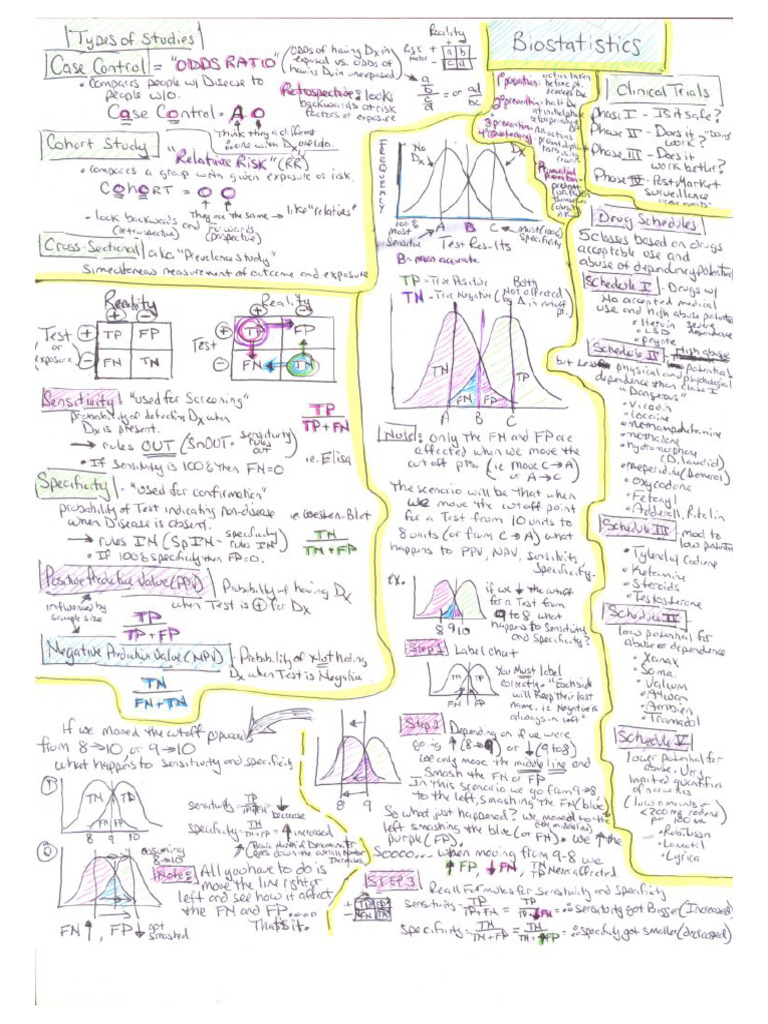 Types of Studies
Case Control = "ODDS RATIO" (ODDS of having Dx in
exposed vs. odds of
having Dx in unexposed)
Reality
Risk factor
+ -
a b
c d
a/b / c/d = or ad/bc
• Compares people w/ Disease to
people w/o.
Retrospective: looks
backwards at risk
factors or exposure
Case Control = A O
Think they a different
one with Dx one w/o
Cohort Study
"Relative Risk" (RR)
• compares a group with given exposure or risk.
COHORT = O O
They are the same → like "relatives"
- look backwards
(retrospective) and Forwards
(prospective)
Cross-Sectional a.k.a. "Prevalence study"
Simultaneous measurement of outcome and exposure
Reality
+ -
Test
or
exposure
+ TP FP
- FN TN
Reality
+ -
Test
+ TP FP
- FN TN
Sensitivity: "used for Screening"
probability of detecting Dx when
Dx is present.
TP
TP + FN
→ rules OUT (SnOUT - sensitivity
rules
OUT)
i.e. Elisa
• If sensitivity is 100% then FN=0
Specificity: - "used for confirmation"
probability of Test indicating non-disease
when Disease is absent.
i.e. Western-Blot
→ rules IN (SpIN - specificity
rules IN)
TN
TN + FP
• If 100% specificity then FP=0.
Positive Predictive Value (PPV)
Probability of having Dx
when Test is + for Dx
influenced by
sample size
TP
TP + FP
Negative Predictive Value (NPV)
- Probability of Not having
Dx when Test is Negative
TN
FN+TN
If we moved the cutoff
from 8→10, or 9→10
what happens to sensitivity and specificity
1
TN TP
FN FP
8 9 10
sensitivity = TP
TP+FN
↓ Decrease
specificity = TN
TN+FP = ↑ increased
2
assuming
8→10
Note:
All you have to do is
move the line right or
left and see how it affect
the FN and FP....
That's it.
FN ↑, FP ↓ got
smashed
Biostatistics
1° prevention: action taken
before pt.
2° prevention
3° prevention
Clinical Trials
Phase I - Is it safe?
Phase II - Does it
work?
Phase III - Does it
work better?
Phase IV - Post-Market
surveillance
FREQUENCY
No Dx
Dx
A B C
100%
most
Sensitive
Test Results
Most (100%)
Specificity
B = most accurate
TP - True Positive
TN - True Negative
Both
(Not affected
by Δ in cutoff
pt.)
TN TP
FN FP
A B C
Note: only the FN and FP are
affected when we move the
cutoff pts. (i.e. move C→A)
or A→C
The scenario will be that when
we move the cutoff point
for a Test from 10 units to
8 units (or from C→A) what
happens to PPV, NPV, sensitivity
Specificity.
ex.
8 9 10
if we ↓ the cutoff
for a Test from
9 to 8, what
happens to sensitivity
and specificity?
Step 1 Label chart
You Must label
correctly. "Each side
will keep their last
name. i.e. Negative is
always on left"
Step 2
Depending on if we were
going ↑ (8→9) or ↓ (9 to 8)
we only move the middle line and
smash the FN or FP
In this scenario we go from 9→8
to the left, smashing the FN (blue)
8 9
So what just happened? We moved to the
left smashing the blue (or FN). We ↑ the
purple (FP).
Soooo... when moving from 9-8 we
↑ FP, ↓ FN, TN, TP Never affected.
STEP 3
Recall Formulas for Sensitivity and Specificity
+ TP FP
- FN TN
sensitivity = TP
TP + FN = TP
TP ↓FN = ∴ sensitivity got Bigger (Increased)
specificity = TN
TN + FP = TN
TN + ↑FP = ∴ specificity got smaller (decreased)
Drug Schedules
5 classes based on drugs
acceptable use and
abuse or dependency potential
Schedule I - Drugs w/
No accepted medical
use and high abuse potential
• Heroin
• LSD
• peyote
severe
dependence
Schedule II - High abuse
potential
but Less physical and psychological
dependence than class I
"Dangerous"
• Vicodin
• cocaine
• methamphetamine
• methadone
• hydromorphone
(Dilaudid)
• meperidine (Demerol)
• oxycodone
• Fentanyl
• Adderall, Ritalin
Schedule III - mod to
low potential
• Tylenol/codiene
• Ketamine
• Steroids
• Testosterone
Schedule IV
low potential for
abuse or dependence
• Xanax
• Soma
• Valium
• Ativan
• Ambien
• Tramadol
Schedule V
lower potential for
abuse. Very
limited quantities
of narcotics
(low amounts of
<200mg codiene
per 100mL)
• Robitussin
• Lomotil
• Lyrica